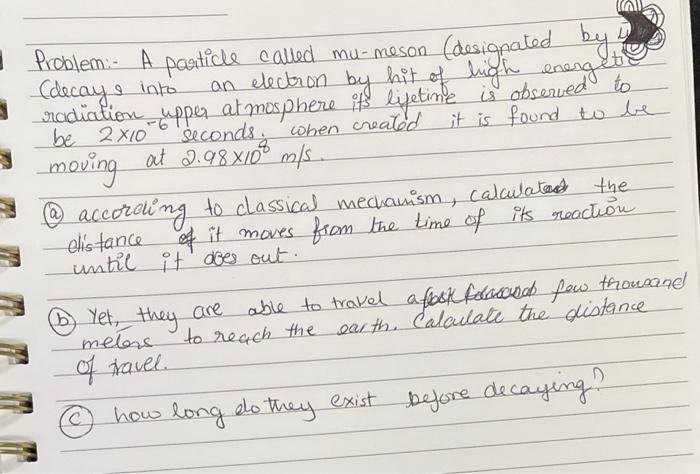 Problem:- A particle called mu-meson (designated by
(decays into an electron by hit of high energetic
radiation upper atmosphere its lifetime is observed to
be 2×10⁻⁶ seconds. when created it is found to be
moving at 2.98×10⁸ m/s.
ⓐ according to classical mechanism, calculate the
distance it moves from the time of its reaction
until it does out.
ⓑ Yet, they are able to travel a few thousand
meters to reach the earth. Calculate the distance
of travel.
ⓒ how long do they exist before decaying?